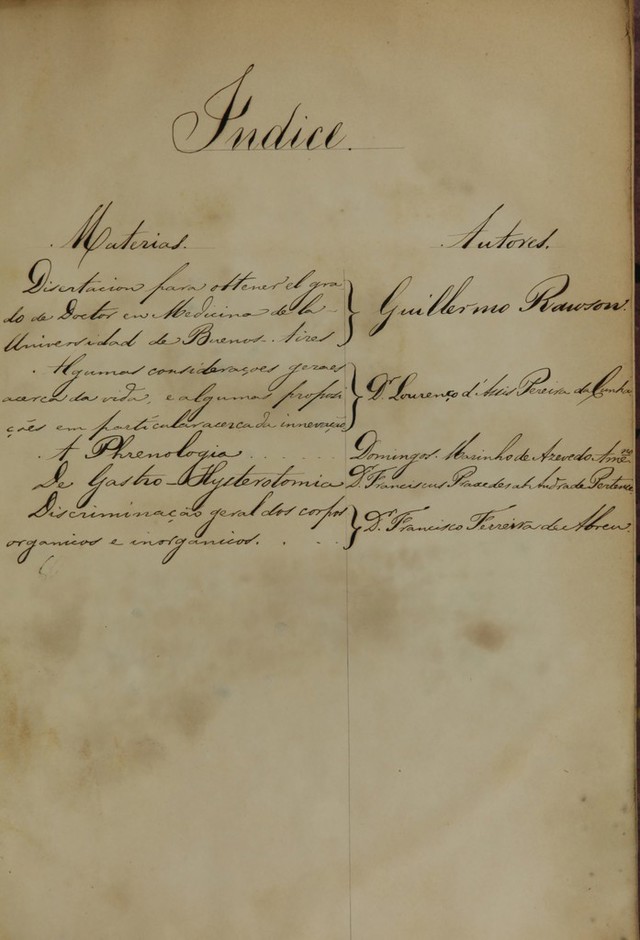 Indice.
Materias. Autores.
Disertacion para obtener el gra
do de Doctor en Medicina de la
Universidad de Buenos-Aires } Guillermo Rawson.
Algumas considerações geraes
acerca da vida, e algumas proposi
ções em particular acerca da innevação } Dr. Lourenço d'Assis Pereira da Cunha
A Phrenologia . . . . . . Domingos Marinho de Azevedo Ameno
De Gastro-Hysterotomia Dr. Franciscus Praxedes ab Andrade Pertence
Discriminação geral dos corpos
organicos e inorganicos. . . . } Dr. Francisco Ferreira de Abreu.